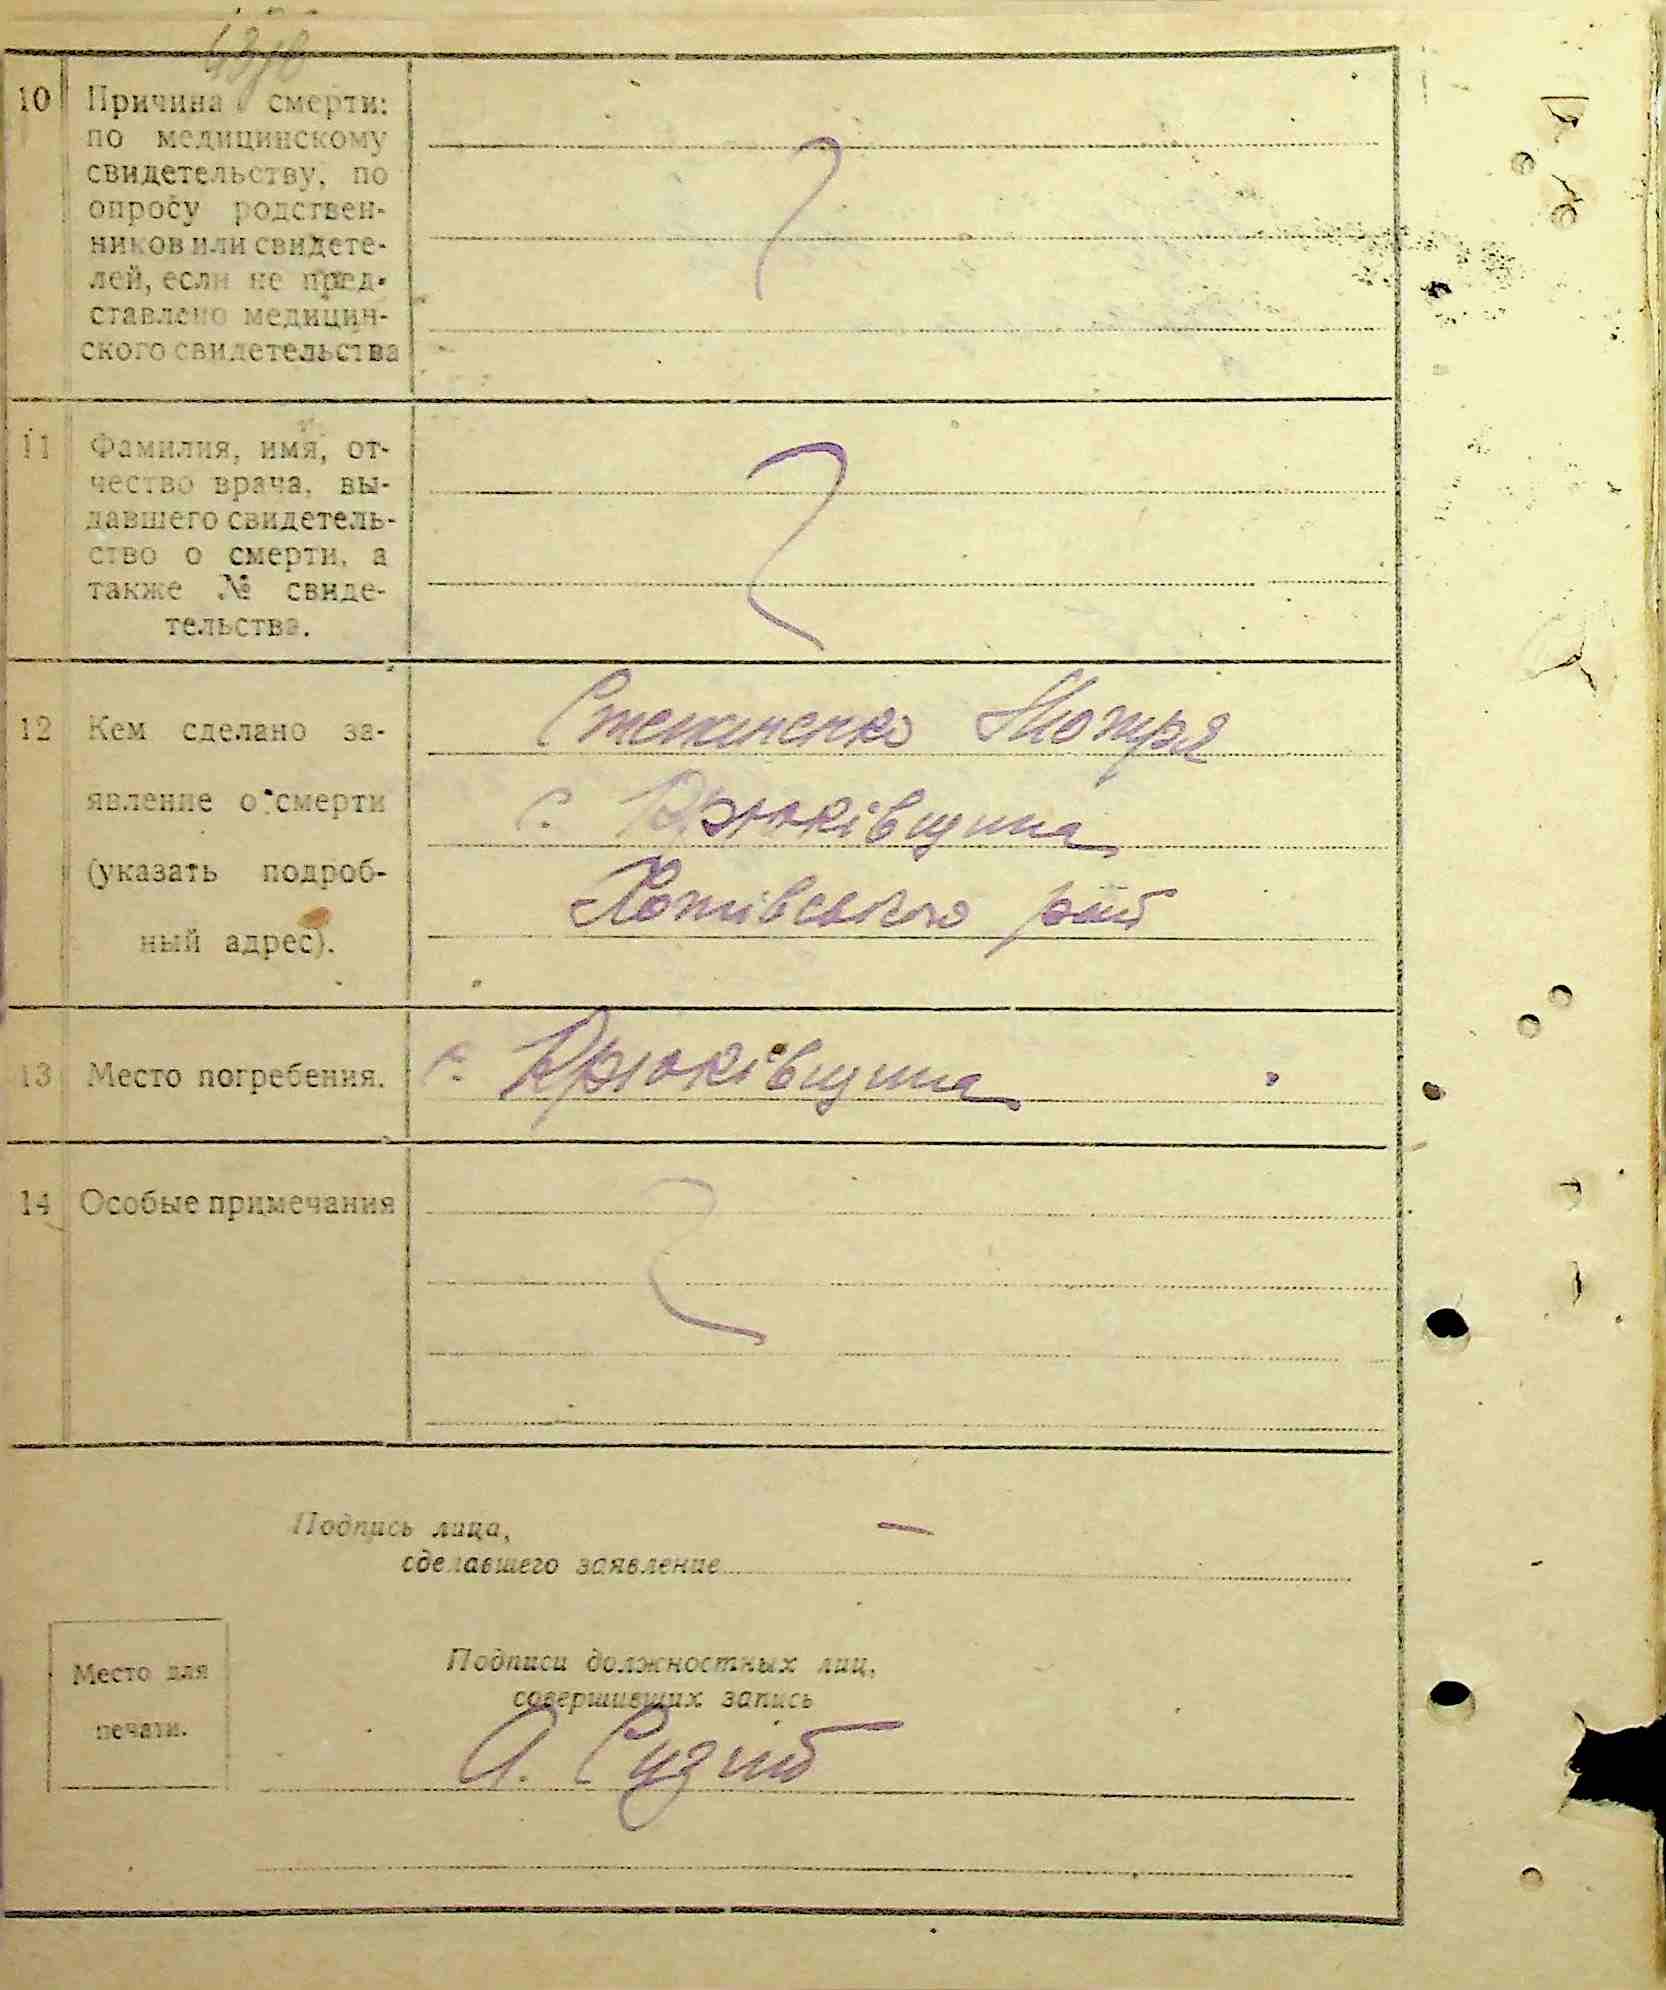 10 Причина смерти:
по медицинскому
свидетельству, по
опросу родствен-
ников или свидете-
лей, если не пред-
ставлено медицин-
ского свидетельства
11 Фамилия, имя, от-
чество врача, вы-
давшего свидетель-
ство о смерти, а
также № свиде-
тельства.
12 Кем сделано за-
явление о смерти
(указать подроб-
ный адрес).
Степаненко Мотря
с. Крюківщина
Хотівського рай
13 Место погребения.
с. Крюківщина
14 Особые примечания
Подпись лица,
сделавшего заявление
Место для
печати.
Подписи должностных лиц,
совершивших запись
А.